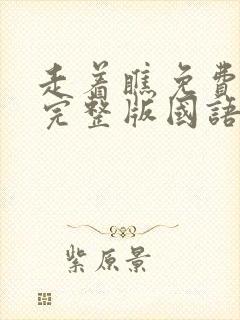 走着瞧免費
完整版國語
紫原景